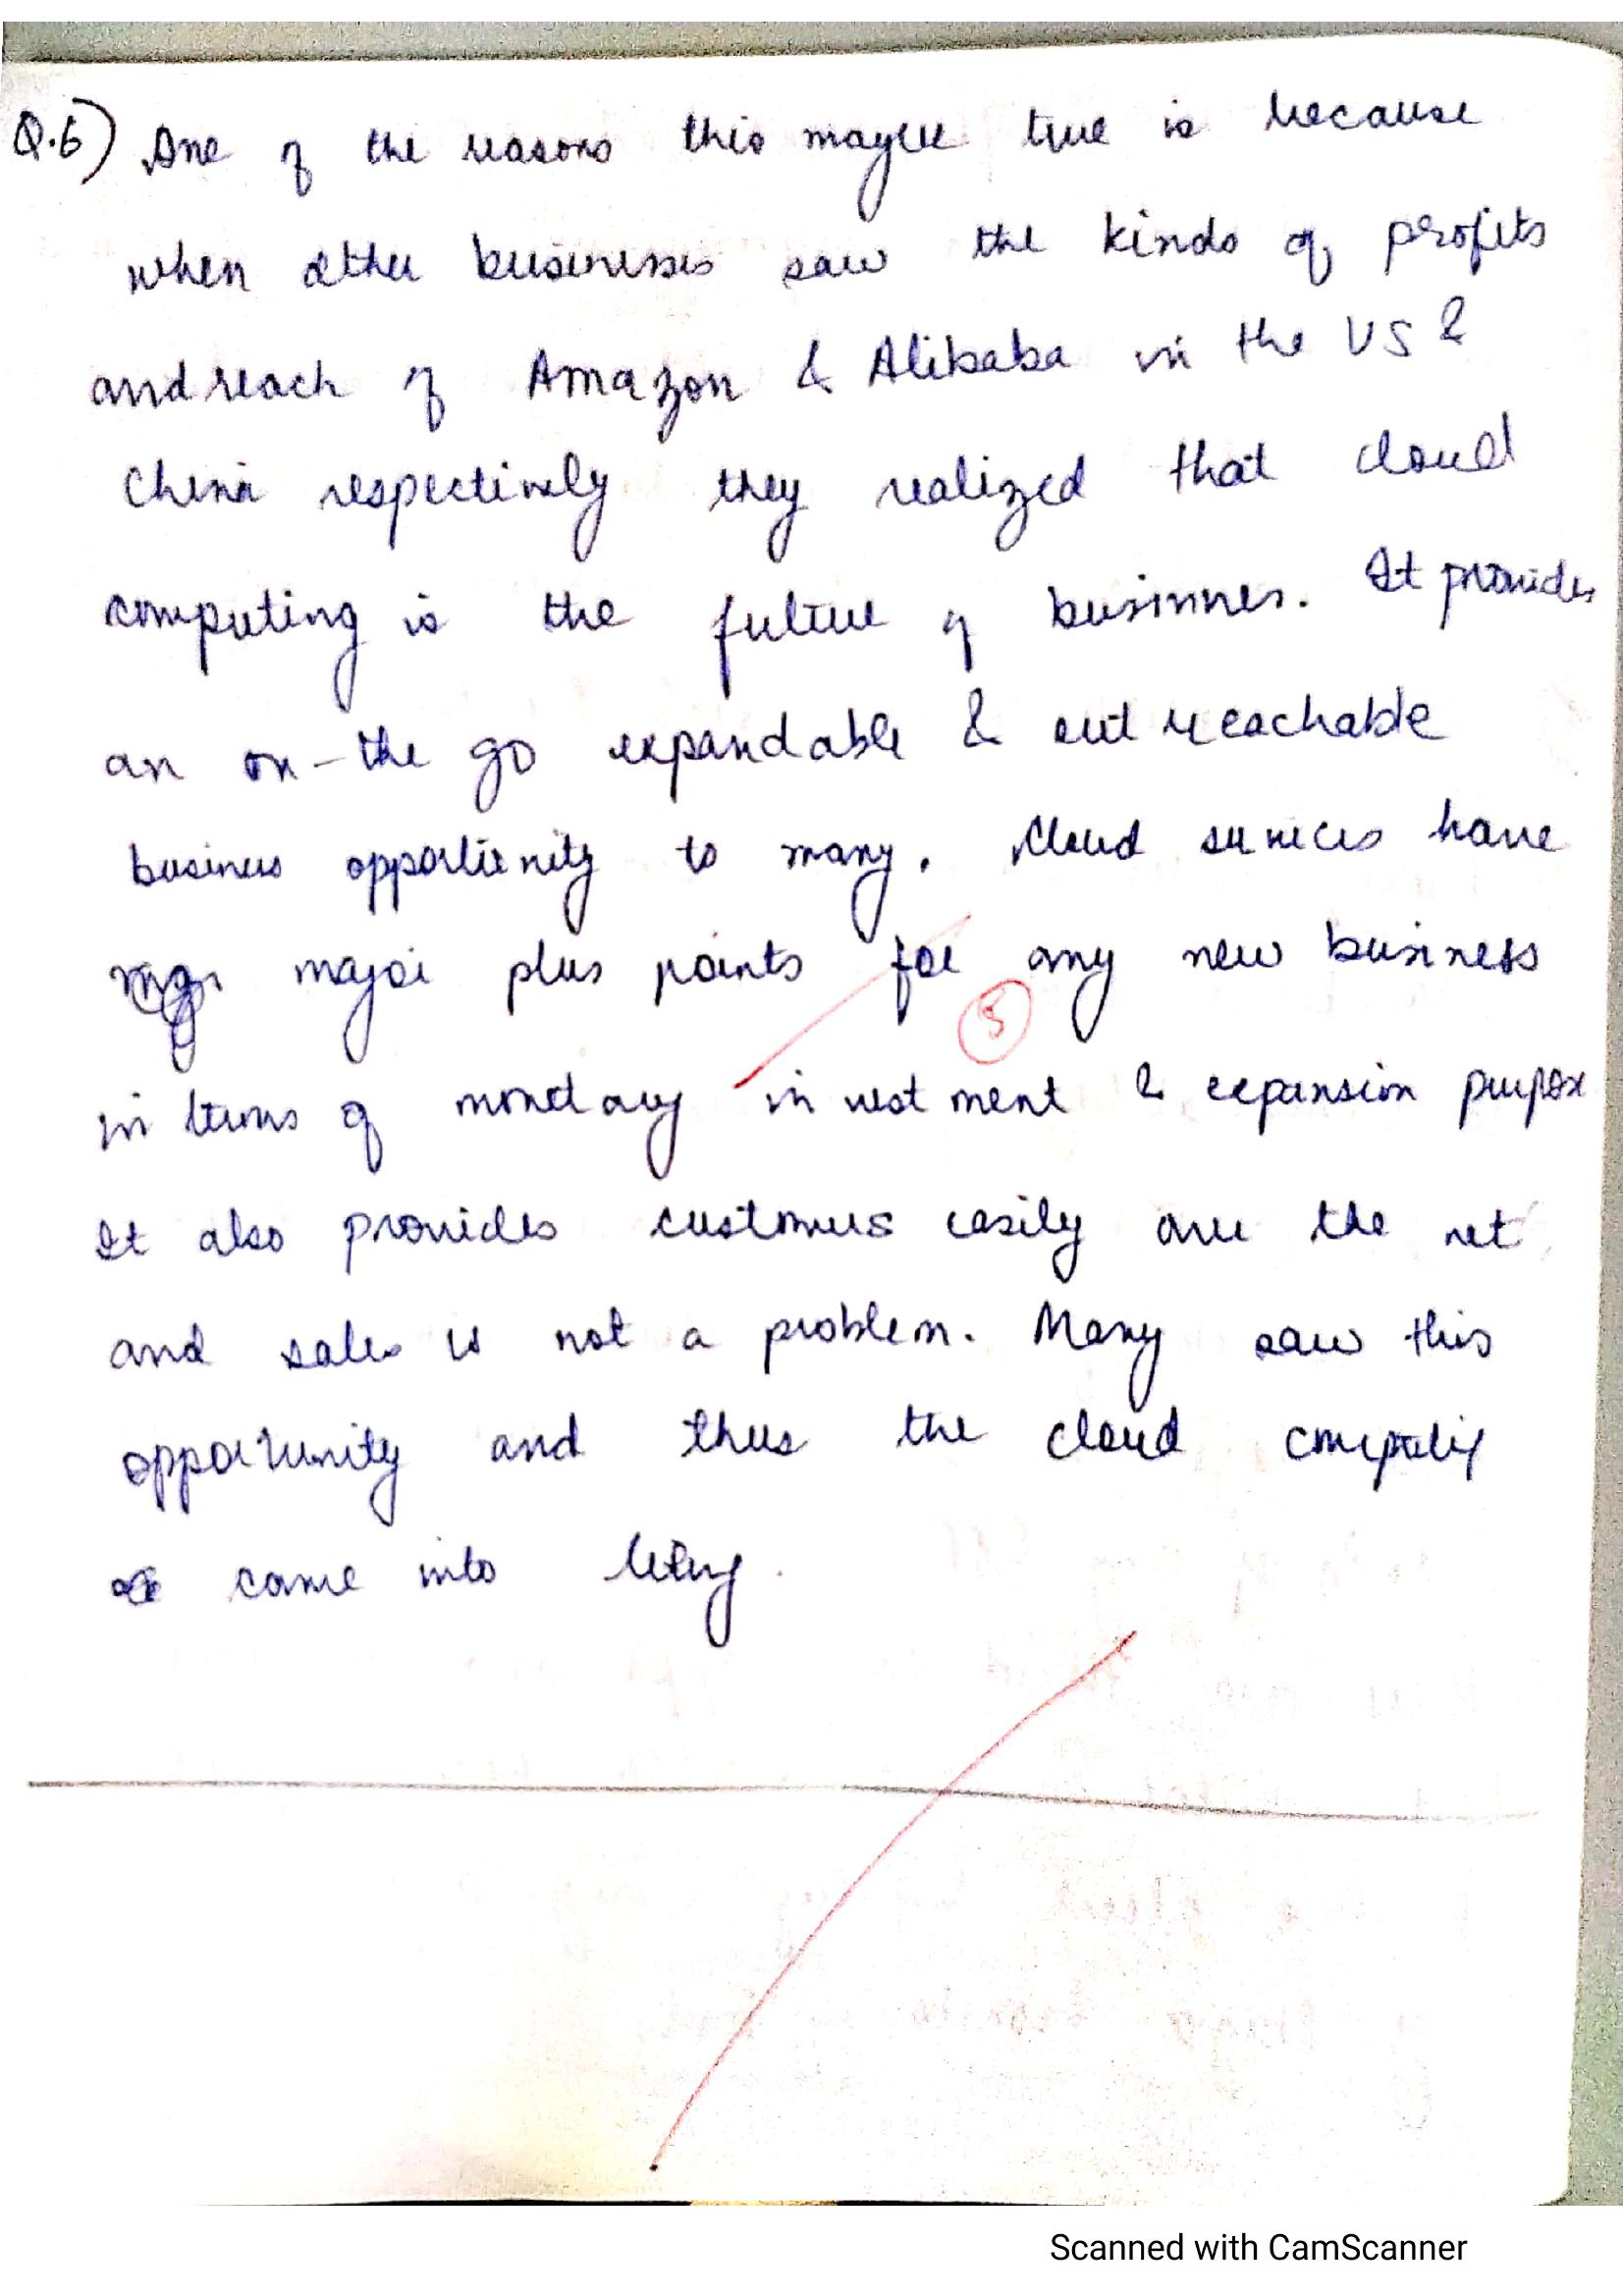 Q.6) One of the reasons this maybe true is because
when other businesses saw the kinds of profits
and reach of Amazon & Alibaba in the US &
China respectively they realized that cloud
computing is the future of businnes. It provides
an on-the go expandable & outreachable
business opportunity to many. Cloud services have
major plus points for any new business
in terms of monetary investment & expansion purpose
It also provides customers easily over the net
and sales is not a problem. Many saw this
opportunity and thus the cloud computing
came into being.
5
Scanned with CamScanner